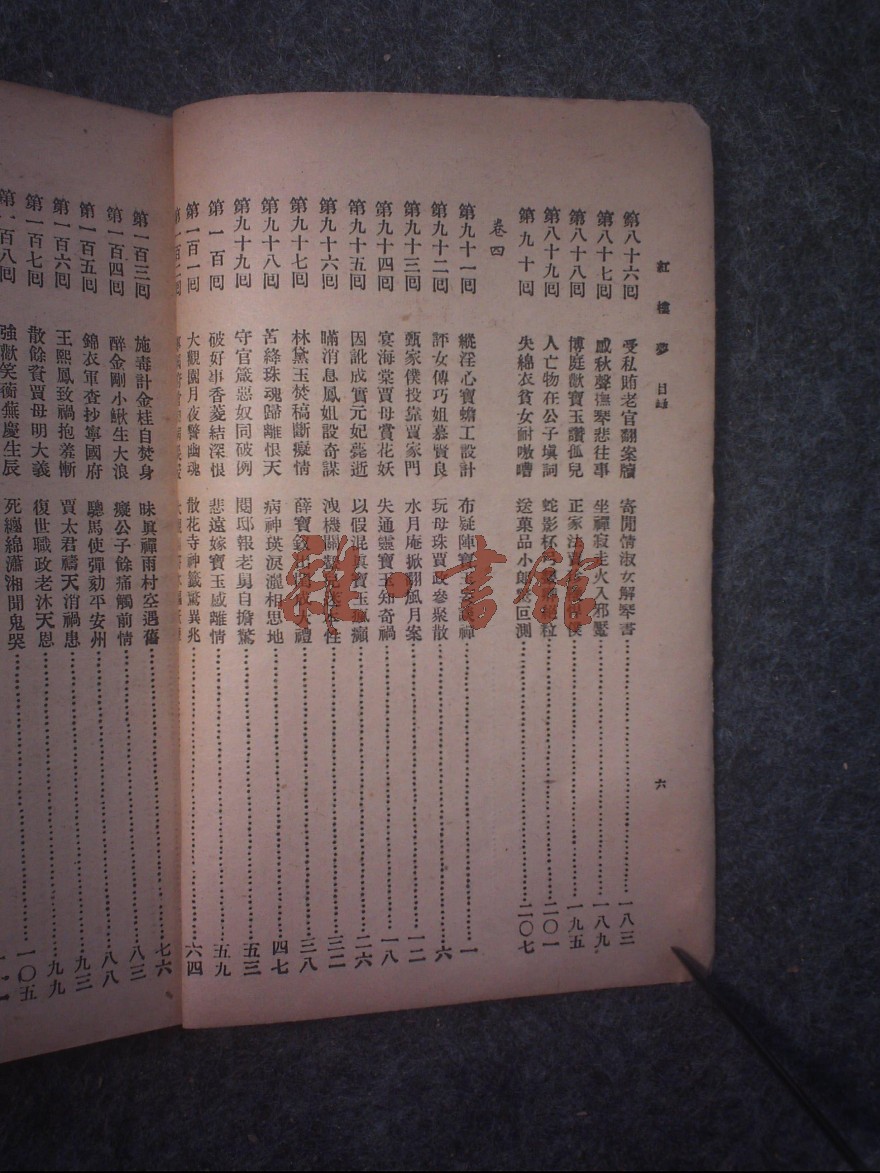 紅樓夢 目錄 六
第八十六囘 受私賄老官翻案牘 寄閒情淑女解琴書 一八三
第八十七囘 感秋聲撫琴悲往事 坐禪寂走火入邪魔 一八九
第八十八囘 博庭歡寶玉讚孤兒 正家法賈 一九五
第八十九囘 人亡物在公子填詞 蛇影杯弓 絕粒 二〇一
第九十囘 失綿衣貧女耐嗷嘈 送菓品小郎驚叵測 二〇七
卷四
第九十一囘 縱淫心寶蟾工設計 布疑陣寶玉妄談禪 一
第九十二囘 評女傳巧姐慕賢良 玩母珠賈政參聚散 六
第九十三囘 甄家僕投靠賈家門 水月庵掀翻風月案 一二
第九十四囘 宴海棠賈母賞花妖 失通靈寶玉知奇禍 一八
第九十五囘 因訛成實元妃薨逝 以假混眞寶玉瘋癲 二六
第九十六囘 瞞消息鳳姐設奇謀 洩機關顰兒迷本性 三二
第九十七囘 林黛玉焚稿斷癡情 薛寶釵出閨成大禮 三八
第九十八囘 苦絳珠魂歸離恨天 病神瑛淚灑相思地 四七
第九十九囘 守官箴惡奴同破例 閱邸報老舅自擔驚 五三
第一百囘 破好事香菱結深恨 悲遠嫁寶玉感離情 五九
第一百一囘 大觀園月夜警幽魂 散花寺神籤驚異兆 六四
第一百二囘
第一百三囘 施毒計金桂自焚身 昧眞禪雨村空遇舊 七六
第一百四囘 醉金剛小鰍生大浪 癡公子餘痛觸前情 八三
第一百五囘 錦衣軍查抄寧國府 驄馬使彈劾平安州 八八
第一百六囘 王熙鳳致禍抱羞慚 賈太君禱天消禍患 九三
第一百七囘 散餘資賈母明大義 復世職政老沐天恩 九九
第一百八囘 強歡笑蘅蕪慶生辰 死纏綿瀟湘聞鬼哭 一〇五
雜·書館